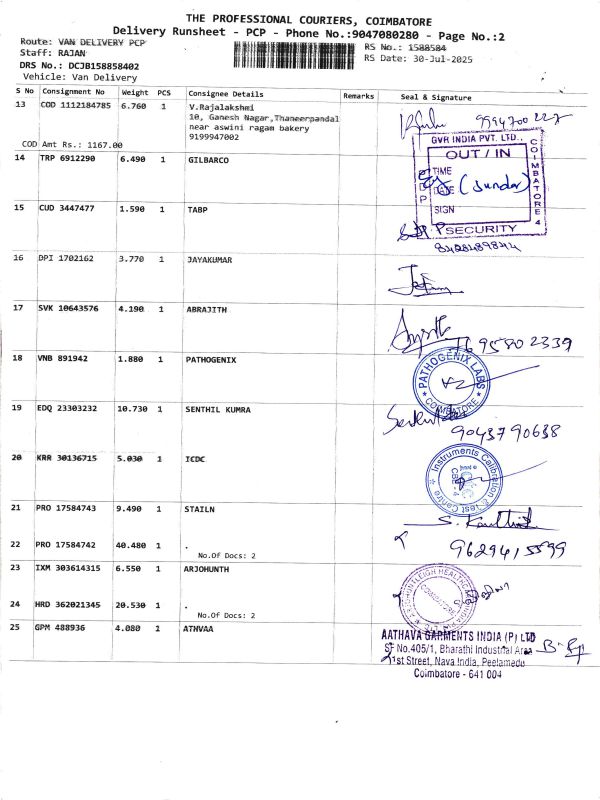 THE PROFESSIONAL COURIERS, COIMBATORE
Delivery Runsheet - PCP - Phone No.:9047080280 - Page No.:2
Route: VAN DELIVERY PCP
RS No.: 1588584
Staff: RAJAN
RS Date: 30-Jul-2025
DRS No.: DCJB158858402
Vehicle: Van Delivery
S No Consignment No Weight PCS Consignee Details Remarks Seal & Signature
13 COD 1112184785 6.760 1 V.Rajalakshmi
10, Ganesh Nagar,Thaneerpandal
near aswini ragam bakery
9199947002
COD Amt Rs.: 1167.00
GVR INDIA PVT. LTD.,
OUT / IN
TIME
DATE (Sundar)
SIGN
SECURITY
COIMBATORE 4
14 TRP 6912290 6.490 1 GILBARCO
15 CUD 3447477 1.590 1 TABP
16 DPI 1702162 3.770 1 JAYAKUMAR
17 SVK 10643576 4.190 1 ABRAJITH
18 VNB 891942 1.880 1 PATHOGENIX
PATHOGENIX LABS
COIMBATORE
19 EDQ 23303232 10.730 1 SENTHIL KUMRA
9043790638
20 KRR 30136715 5.030 1 ICDC
Instruments Calibration & Test Centre
CBE - 4
21 PRO 17584743 9.490 1 STAILN
22 PRO 17584742 40.480 1 .
No.Of Docs: 2
9629415599
23 IXM 303614315 6.550 1 ARJOHUNTH
24 HRD 362021345 20.530 1 .
No.Of Docs: 2
25 GPM 488936 4.080 1 ATHVAA
AATHAVA GARMENTS INDIA (P) LTD
SF No.405/1, Bharathi Industrial Area
21st Street, Nava India, Peelamedu
Coimbatore - 641 004